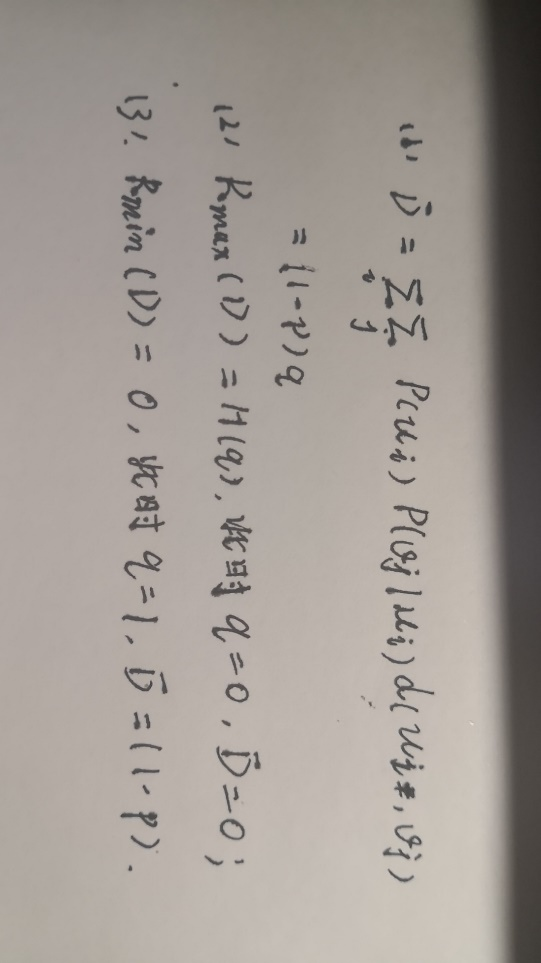 (1) D̄ = Σ_i Σ_j P(u_i) P(v_j|u_i) d(u_i, v_j)
= (1-p)q
(2) R_max(D) = H(q), 此时 q=0, D̄=0;
(3). R_min(D) = 0, 此时 q=1, D̄=(1-p).